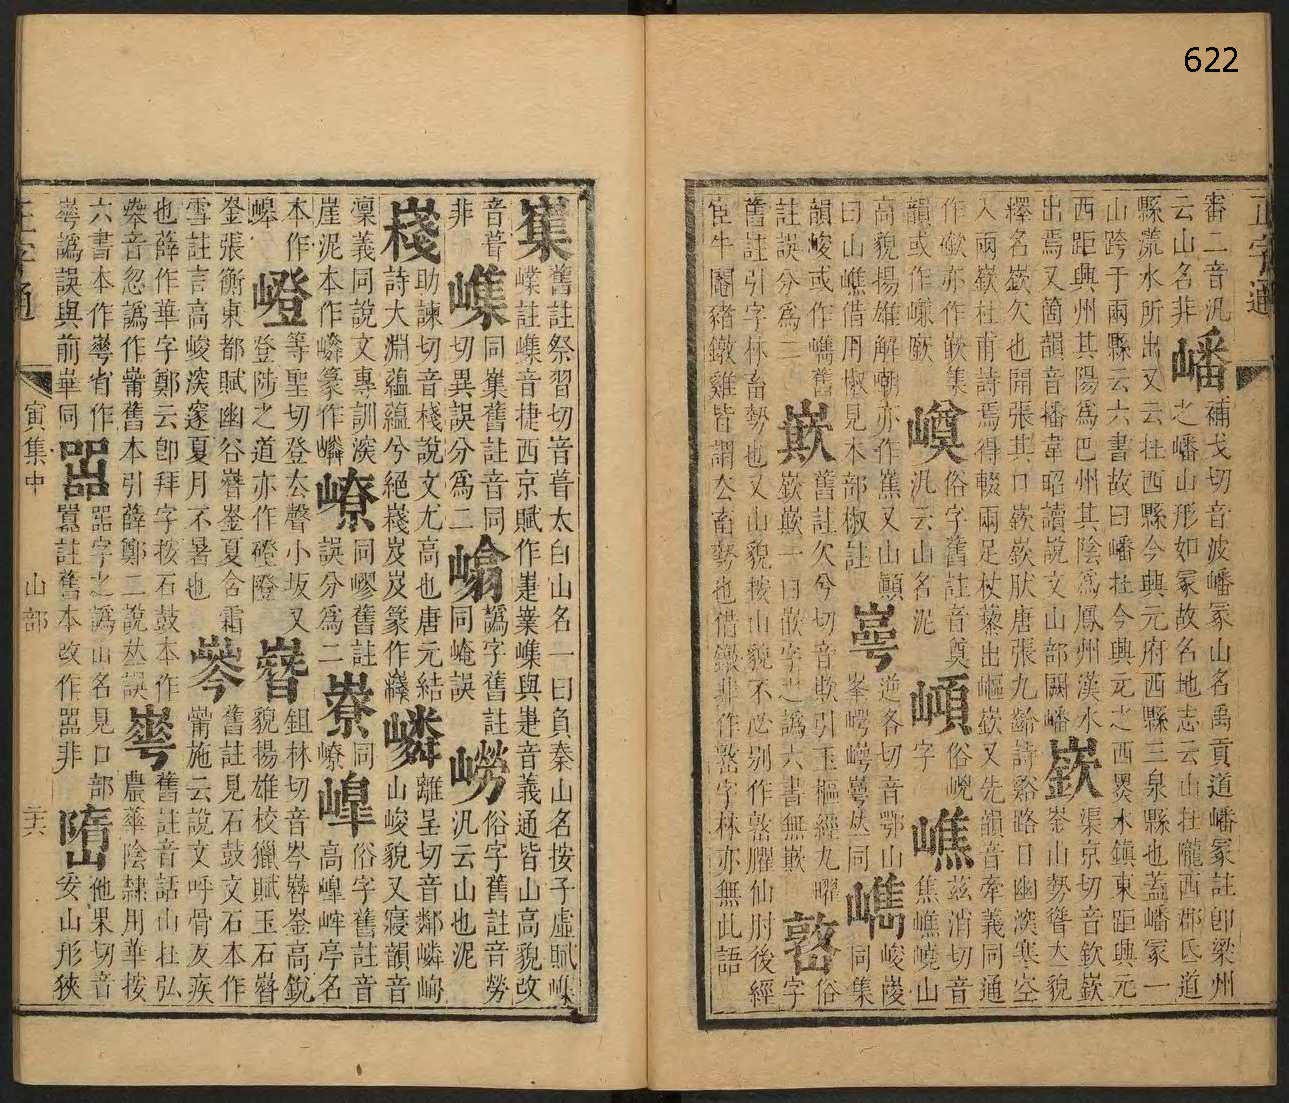 622
正字通
審二音汎
云山名非嶓補戈切音波嶓冢山名禹貢道嶓冢註卽梁州
之嶓山形如冢故名地志云山在隴西郡氐道
縣漾水所出又云在西縣今興元府西縣三泉縣也蓋嶓冢一
山跨于兩縣云六書故曰嶓在今興元之西褁水鎮東距興元
西距興州其陽爲巴州其陰爲鳳州漢水
出焉又箇韻音播韋昭讀說文山部闕嶓嶔渠京切音欽嶔
崟山勢聳大貌
擇名嶔欠也開張其口嶔嶔狀唐張九齡詩谿路日幽深寒空
入兩嶔杜甫詩焉得輟兩足杖藜出嶇嶔又先韻音牽義同通
作嶔亦作嵌集
韻或作嵰厥嶟俗字舊註音奠
汎云山名泥嵿俗嵿字嶕茲消切音
焦嶕嶢山
高貌揚雄解嘲亦作蕉又山顚
曰山嶕借用椒見木部椒註㟧逆各切音鄂山
峯崿㟧㟧𠀤同㠎同集
峻㟎
韻峻或作㠎舊
註誤分爲二嶔舊註欠兮切音欺引玉樞經九曜
嶔嶔一曰嵌字之譌六書無嶔嶅俗
字
舊註引字林畜勢也又山貌按山貌不必別作嶅臞仙肘後經
宦牛閹豬鐓雞皆謂去畜勢也借鐓非作嶅字林亦無此語
嶪舊註祭習切音葺太白山名一曰負秦山名按子虛賦嶫
嶫註嶫音捷西京賦作嶻嶪嶫與嶻音義通皆山高貌改
音葺
非嶫同嶪舊註音同
切異誤分爲二㟸譌字舊註
同崦誤嶗俗字舊註音勞
汎云山也泥
嶘助諫切音棧說文尤高也唐元結
詩大淵蘊蘊兮絕嶘岌岌篆作嶘嶙離呈切音鄰嶙峋
山峻貌又寑韻音
凜義同說文專訓深
崖泥本作嶙篆作嶙嶚同嵺舊註
誤分爲二尞同
嶚㟷俗字舊註音
高㟷㟁亭名
本作
㟷嶝等聖切登去聲小坂又
登陟之道亦作磴隥嶜鉏林切音岑嶜崟高銳
貌揚雄校獵賦玉石嶜
崟張衡東都賦幽谷嶜崟夏含霜
雪註言高峻深邃夏月不暑也㟥舊註見石鼓文石本作
𦻏施云說文呼骨友疾
也薛作華字鄭云卽拜字按石鼓本作
𠦪音忽譌作𦻏舊本引薛鄭二說𠀤誤崋舊註音話山在弘
農華陰隸用華按
六書本作崋省作
崋譌誤與前崋同㗊嚚註舊本改作㗊非
㗊字之譌山名見口部嶞他果切音
妥山形狹
正字通
寅集中
山部
二十六